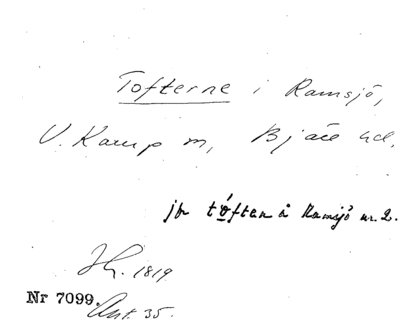 Tofterne i Ramsjö,
V. Karup sn, Bjäre hd.
jfr tóften å Ramsjö nr 2.
Jh. 1819
Nr 7099.
Ant. 35.